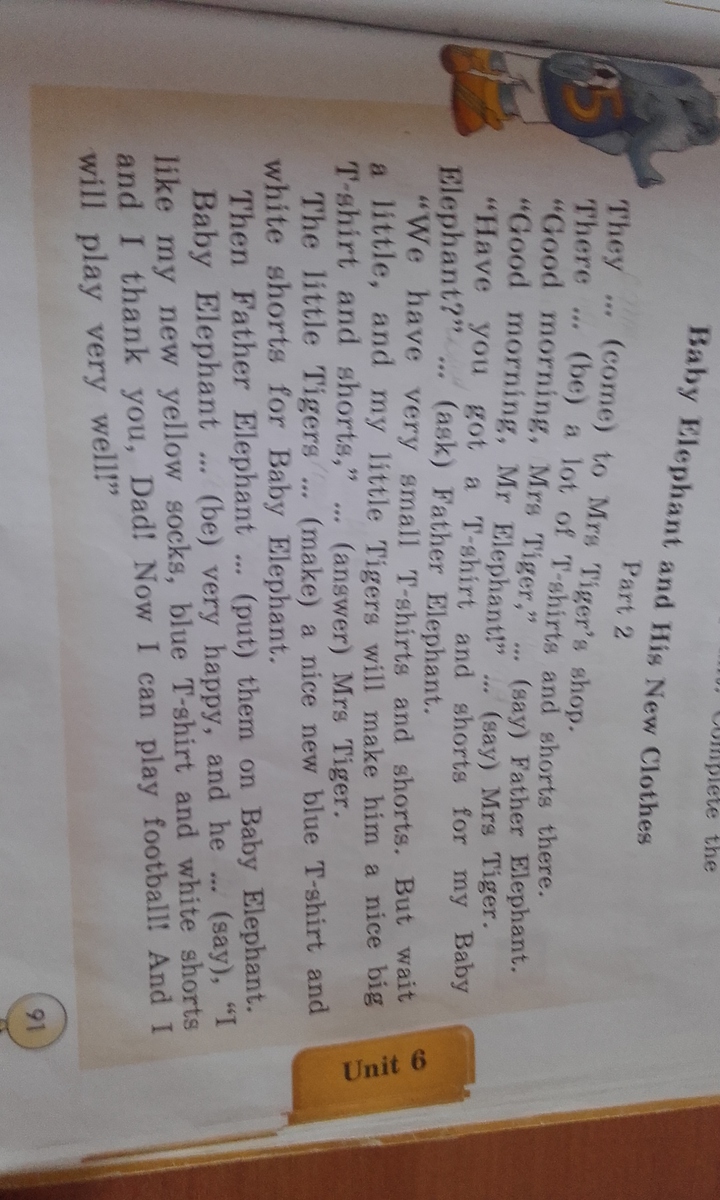 complete the
Baby Elephant and His New Clothes
Part 2
They ... (come) to Mrs Tiger's shop.
There ... (be) a lot of T-shirts and shorts there.
“Good morning, Mrs Tiger,” ... (say) Father Elephant.
“Good morning, Mr Elephant!” ... (say) Mrs Tiger.
“Have you got a T-shirt and shorts for my Baby
Elephant?” ... (ask) Father Elephant.
“We have very small T-shirts and shorts. But wait
a little, and my little Tigers will make him a nice big
T-shirt and shorts,” ... (answer) Mrs Tiger.
The little Tigers ... (make) a nice new blue T-shirt and
white shorts for Baby Elephant.
Then Father Elephant ... (put) them on Baby Elephant.
Baby Elephant ... (be) very happy, and he ... (say), “I
like my new yellow socks, blue T-shirt and white shorts
and I thank you, Dad! Now I can play football! And I
will play very well!”
5
Unit 6
91